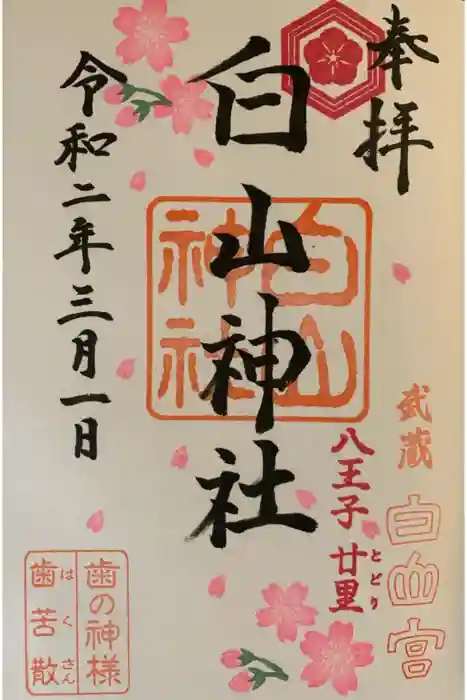 奉拝
白山神社
白山
神社
令和二年三月一日
武蔵
白山宮
八王子 廿里
とどり
歯の神様
歯苦散
はくさん